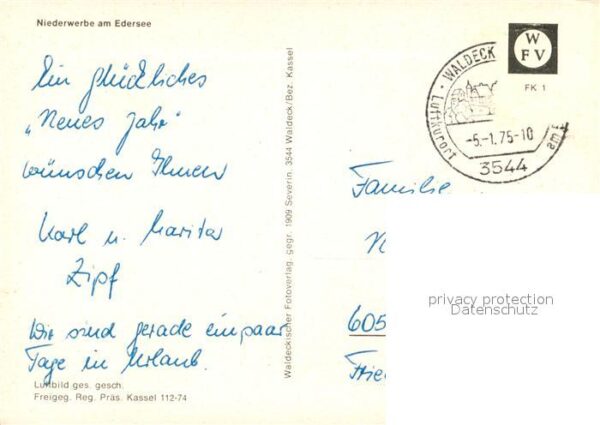 Niederwerbe am Edersee
Ein glückliches
„Neues Jahr“
wünschen Ihnen
Karl u. Marita
Zipf
Wir sind gerade ein paar
Tage in Urlaub.
Luftbild ges. gesch.
Freigeg. Reg. Präs. Kassel 112-74
Waldeckischer Fotoverlag. gegr. 1909 Severin. 3544 Waldeck/Bez. Kassel
W
FV
FK 1
LUFTKURORT · WALDECK am
-5.-1.75-10
3544
Familie
605
privacy protection
Datenschutz